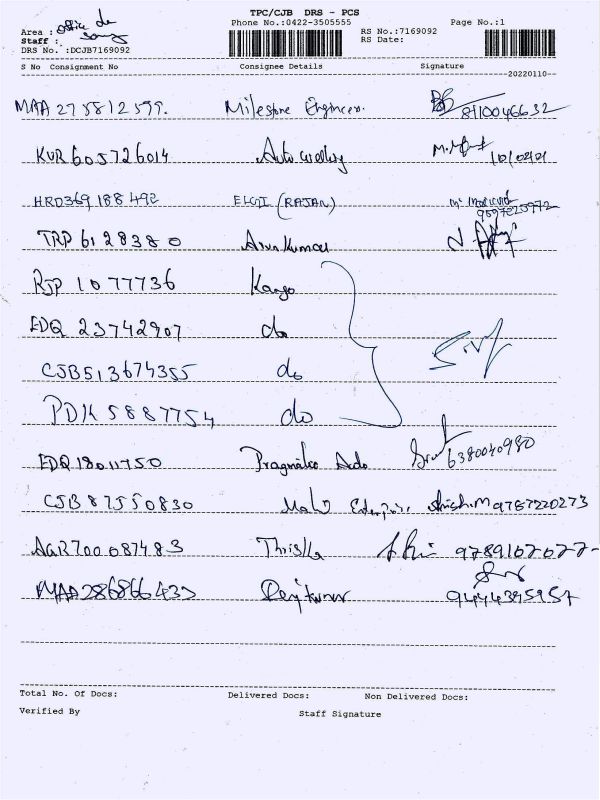 TPC/CJB DRS - PCS
Phone No.:0422-3505555 Page No.:1
Area : office de
Staff : RS No.:7169092
DRS No. :DCJB7169092 RS Date:
S No Consignment No Consignee Details Signature
20220110
MAA 275812599. Milestone Engineer. 8110046632
KUR 605726014 Auto 10/02/01
HRD369188492 ELGI (RAJAN) 9597225972
TRP 6128380 Arunkumar
RJP 1077736 Kango
EDQ 23742907 do
CJB513674355 do
PDK 5887754 do
EDQ 18011750 Pragmatec 6380040980
CJB 87550830 9787220273
AGR700087483
MAA286866433 Rajkumar
9444395957
Total No. Of Docs: Delivered Docs: Non Delivered Docs:
Verified By Staff Signature